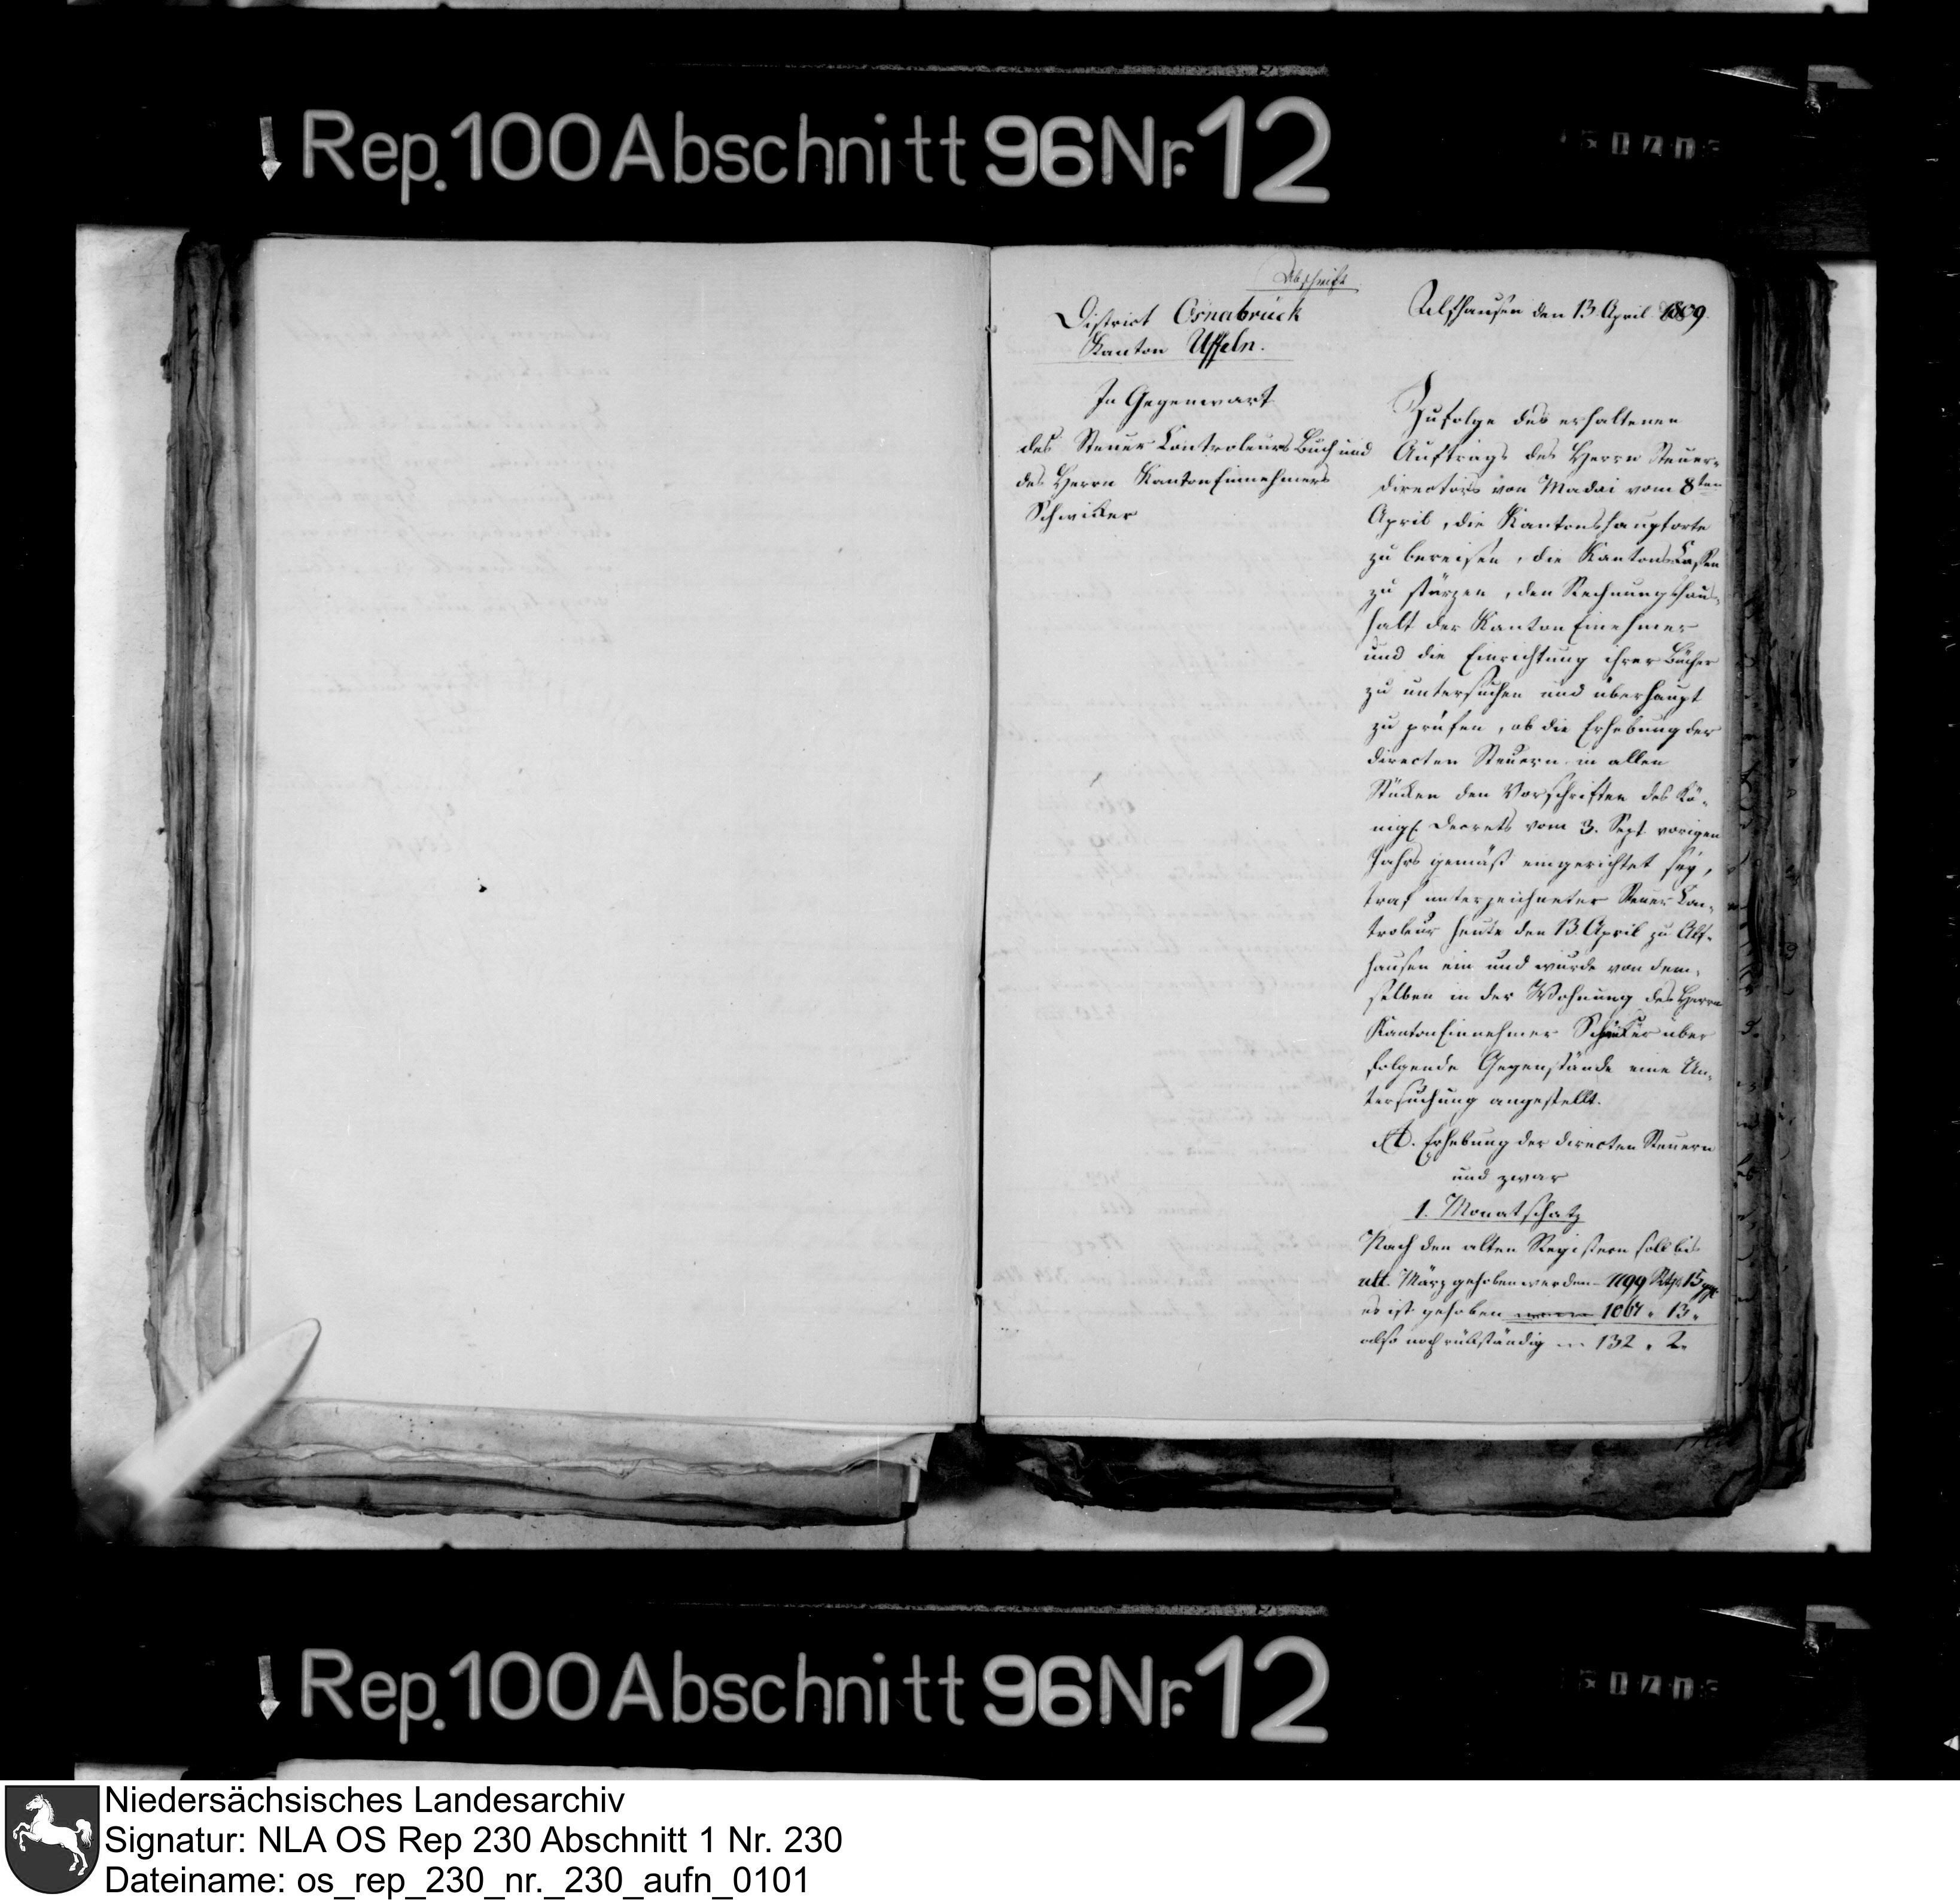 Rep. 100 Abschnitt 96 Nr. 12
Abschrift
District Osnabrück
Kanton Uffeln.
In Gegenwart
des Steuer Controleurs Buch und
des Herrn Kanton Einnehmers
Schwicker
Alfhausen den 13 April 1809.
Zufolge des erhaltenen
Auftrags des Herrn Steuer-
directors von Madai vom 8ten
April, die Kantonshauptorte
zu bereisen, die Kantons Cassen
zu stürzen, den Rechnungshaus-
halt der Kanton Einehmer
und die Einrichtung ihrer Bücher
zu untersuchen und überhaupt
zu prüfen, ob die Erhebung der
directen Steuern in allen
Stücken den Vorschriften des Kö-
nigl. Decrets vom 3. Sept. vorigen
Jahrs gemäß eingerichtet sey,
traf unterzeichneter Steuer Con-
troleur heute den 13 April zu Alf-
hausen ein und wurde von dem-
selben in der Wohnung des Herrn
Kanton Einnehmer über
folgende Gegenstände eine Un-
tersuchung angestellt.
A. Erhebung der directen Steuern
und zwar
1. Monatschatz
Nach den alten Registern soll bis
ult. März gehoben werden - 1199 Rtlr 15 ggr
es ist gehoben 1067 " 13 "
also noch rückständig 132 " 2 "
Rep. 100 Abschnitt 96 Nr. 12
Niedersächsisches Landesarchiv
Signatur: NLA OS Rep 230 Abschnitt 1 Nr. 230
Dateiname: os_rep_230_nr._230_aufn_0101